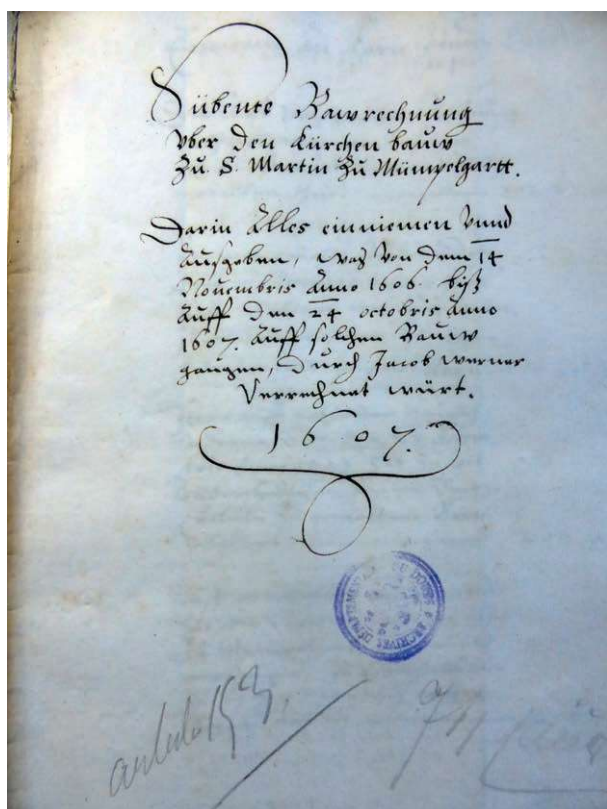 Sübente Bawrechnung
Vber den Kürchen bauw
Zu S. Martin Zu Mümpelgartt.
Darin Alles einniemen Vnnd
Außgeben, waß Von dem 14
Nouembris Anno 1606. biß
Auff den 24 octobris Anno
1607. Auff solchen Bauw
gangen, durch Jacob werner
Verrechnet würt.
1607.
ARCHIVES DÉPARTEMENTALES DU DOUBS